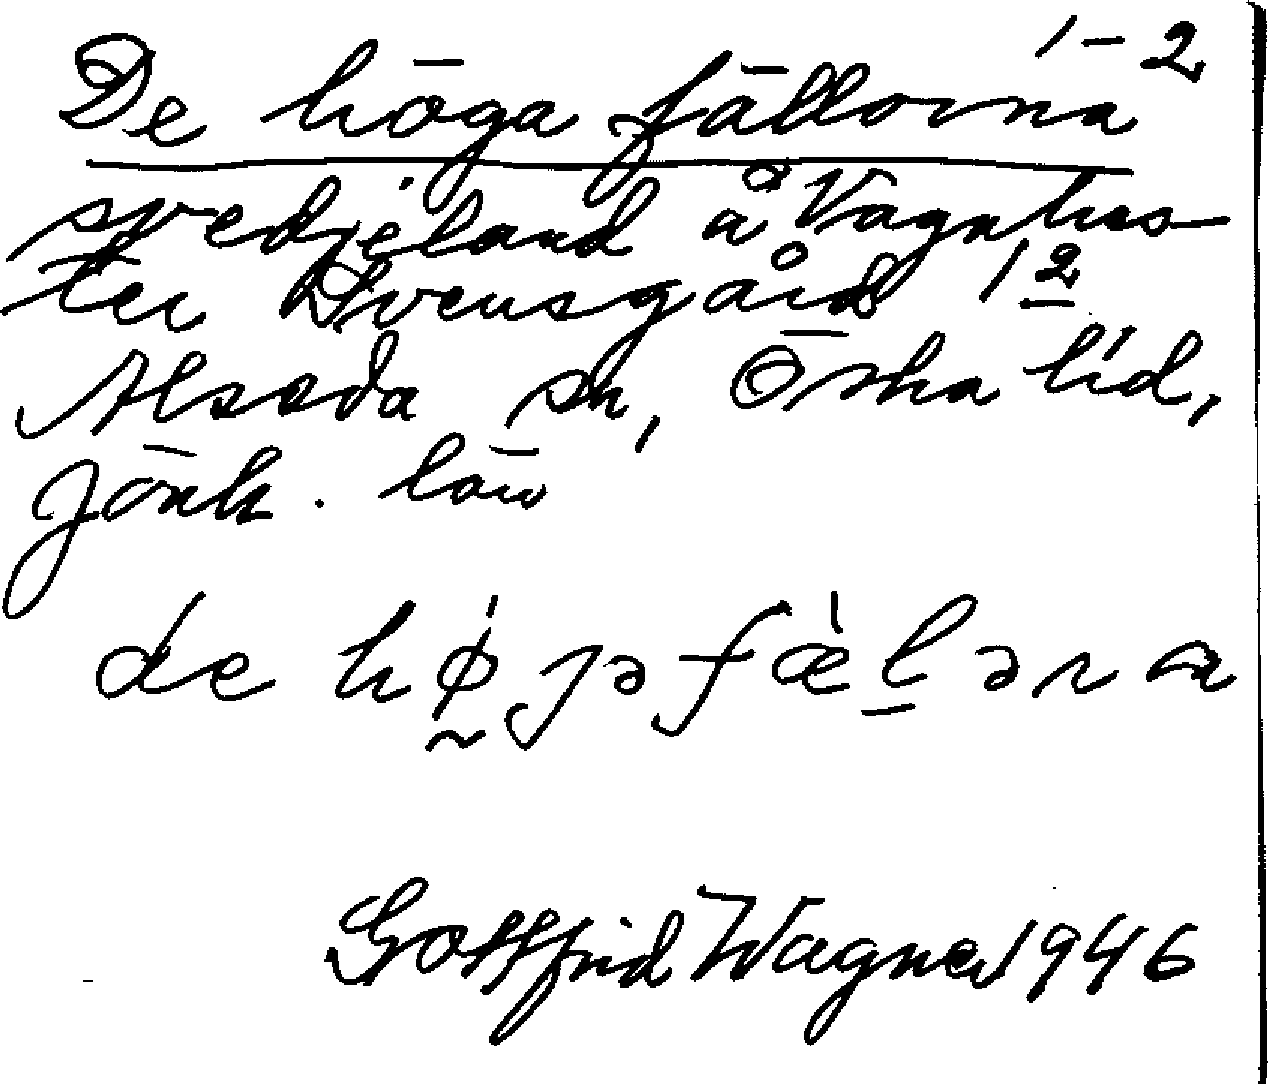 1-2
De höga fällorna
svedjeland å Vagnhes-
ter Svensgård 12
Alseda sn, Östra hd,
Jönk. län
de hǿ̰ȷəfæ̀lərna
Gottfrid Wagner 1946